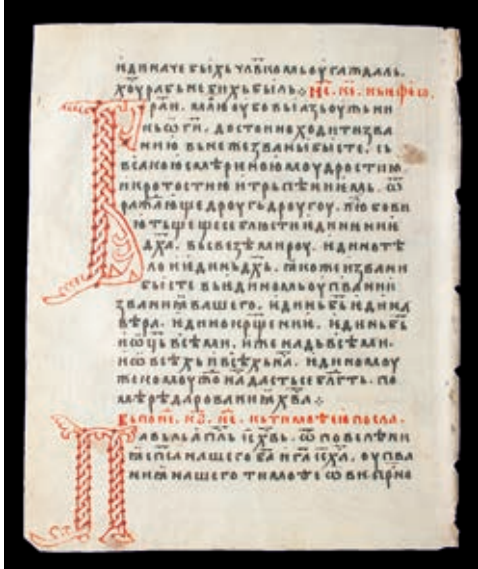 ѥдиначе быхь чл҃вкомь оугаждаль.
хоу рабь не бихь быль⁘ Не. к҃е. кь
млю оубо вы азь оужьни
кь ѡ г҃и. достоино ходити зва
нию вь неже звани бысте. сь
всакою смѣриною моудростию
и кротостию и трьпѣниѥмь.
дроугь дроугоу. любови
ю тьщещесе блюсти ѥдинѥниѥ
дх҃а. вь свезѣ мироу. ѥдино тѣ
ло и ѥдинь дх҃ь. ꙗкоже и звани
бысте вь ѥдиномь оупвании
званиꙗ вашего. ѥдинь б҃ь ѥдина
вѣра. ѥдино кр҃щение. ѥдинь б҃ь
и ѡц҃ь всѣми. иже надь всѣми.
и ѡ всѣхь и вь всѣхь на. ѥдиномоу
же комоужⷣо на дасть се бл҃гть. по
мѣрѣ дарованиꙗ х҃ва⁘
Вь пон҃е. к҃з. не. кь тимоѳею посла.
Павьль ап҃ль іс҃ хв҃ь. ѿ повелѣни
ꙗ сп҃са нашего б҃а и г҃а іс҃ х҃а. оупва
ниꙗ нашего